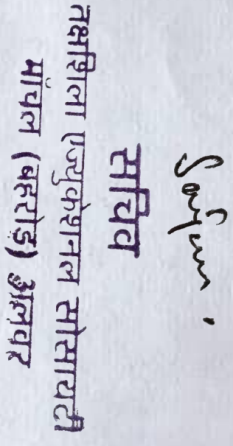 सचिव
तक्षशिला एज्युकेशनल सोसायटी
मांचल (बहरोड़) अलवर